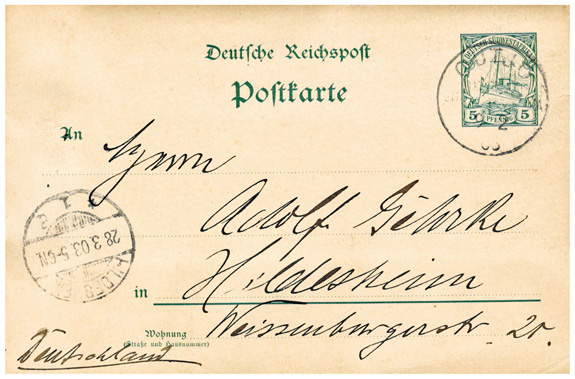 Deutsche Reichspost
Postkarte
DEUTSCH-SÜDWESTAFRIKA
5 PFENNIG 5
An
Herrn
Adolf Gehrke
28.3.03. 5-6N.
in Hildesheim
Wohnung
(Straße und Hausnummer)
Weissenburgerstr. 20.
Deutschland